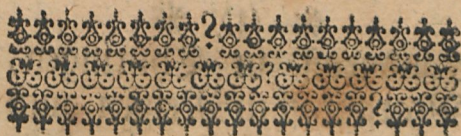 ?
?
?